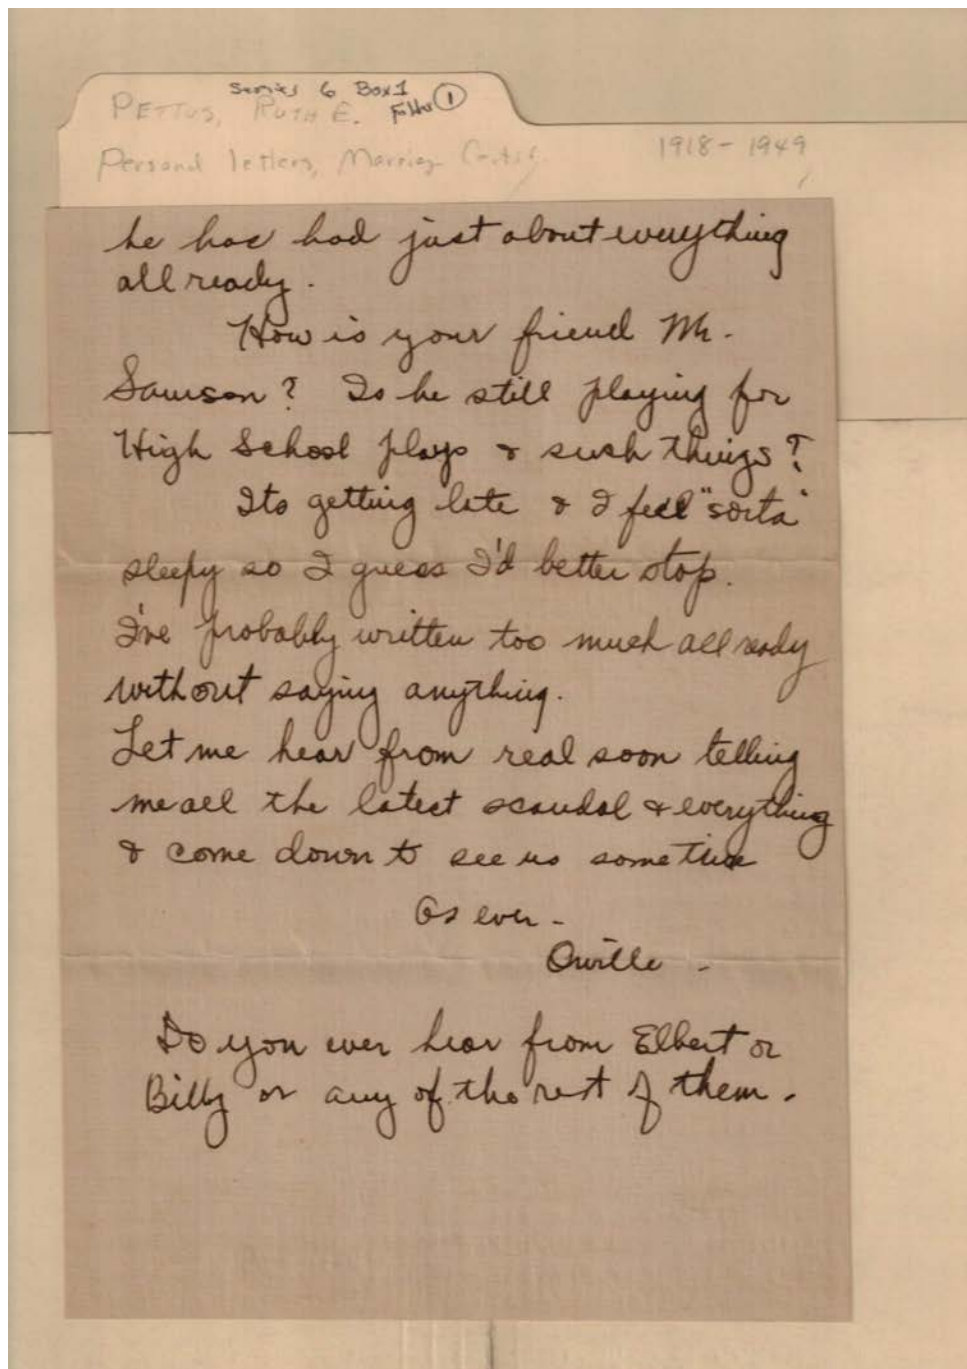 Series 6 Box 1
Folder 1
PETTUS, RUTH E.
Personal letters, Marriage Certif.
1918-1949
he has had just about everything
all ready.
How is your friend Mr.
Samson? Is he still playing for
High School plays & such things?
Its getting late & I feel "sorta"
sleepy so I guess I'd better stop.
I've probably written too much all ready
without saying anything.
Let me hear from real soon telling
me all the latest scandal & everything
& come down to see us sometime
As ever -
Orville -
Do you ever hear from Elbert or
Billy or any of the rest of them.